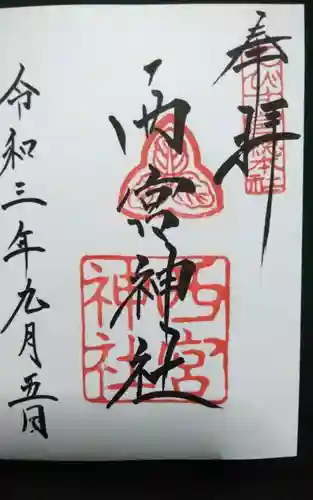 奉拝
西宮神社
西宮
神社
令和三年九月五日